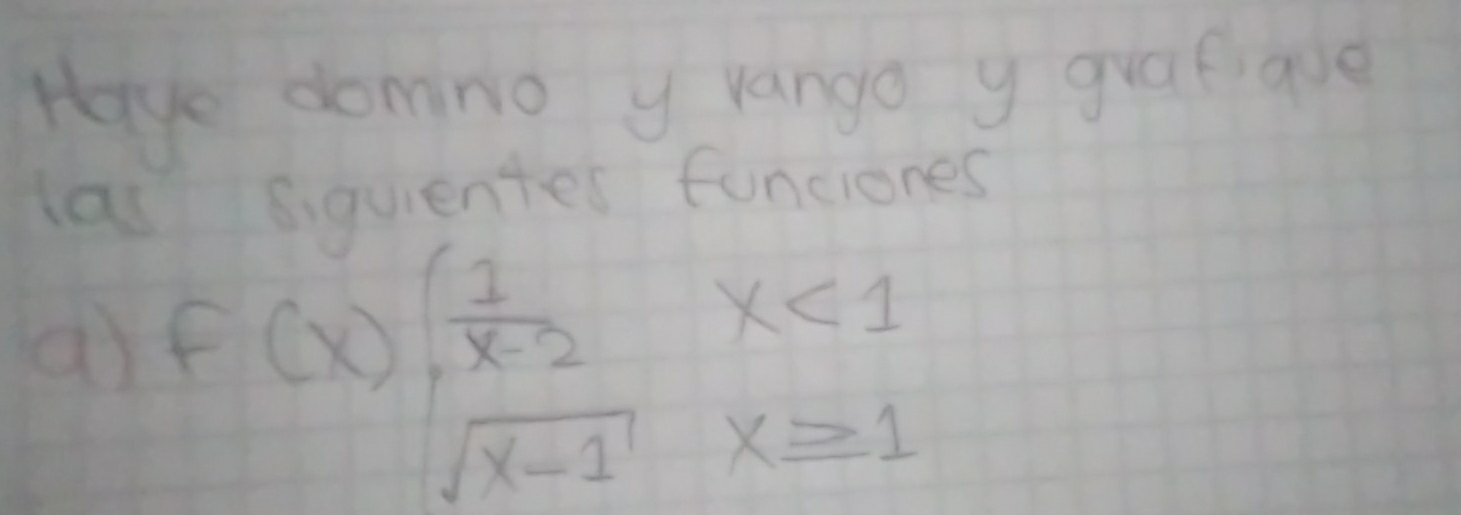 Haye domino y rango y grafique
las siguientes funciones
a) f(x) { 1/(x-2) x<1
√(x-1) x≥1